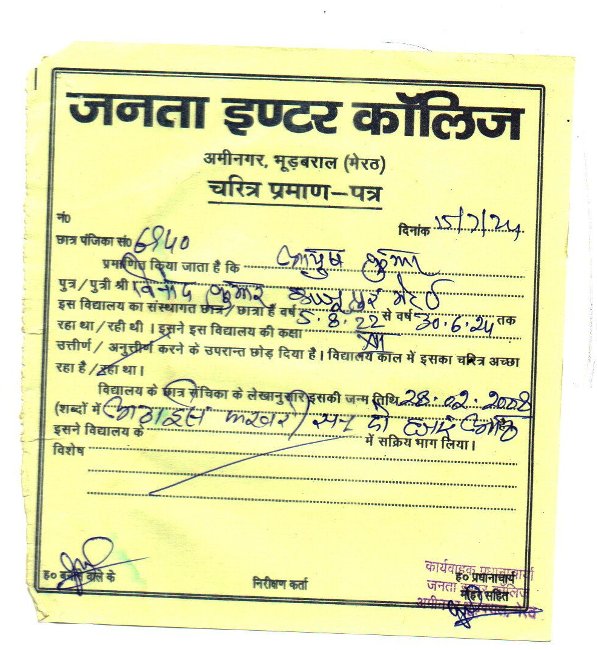 जनता इण्टर कॉलिज
अमीनगर, भूड़बराल (मेरठ)
चरित्र प्रमाण-पत्र
नं०
दिनांक 15/7/24
छात्र पंजिका सं० 6840
प्रमाणित किया जाता है कि आयुष कुमार
पुत्र / पुत्री श्री विनोद कुमार मेरठ
इस विद्यालय का संस्थागत छात्र / छात्रा है वर्ष 5.8.22 से वर्ष 30.6.24 तक
रहा था / रही थी । इसने इस विद्यालय की कक्षा
उत्तीर्ण / अनुत्तीर्ण करने के उपरान्त छोड़ दिया है। विद्यालय काल में इसका चरित्र अच्छा
रहा है / रहा था।
विद्यालय के छात्र संचिका के लेखानुसार इसकी जन्म तिथि 28.02.2008
(शब्दों में अठाइस फरवरी सन दो हजार आठ
इसने विद्यालय के में सक्रिय भाग लिया।
विशेष
ह० बनाने वाले के
निरीक्षण कर्ता
कार्यवाहक प्रधानाचार्य
ह० प्रधानाचार्य
जनता इण्टर कॉलिज
मोहर सहित
अमीनगर भूड़बराल, मेरठ